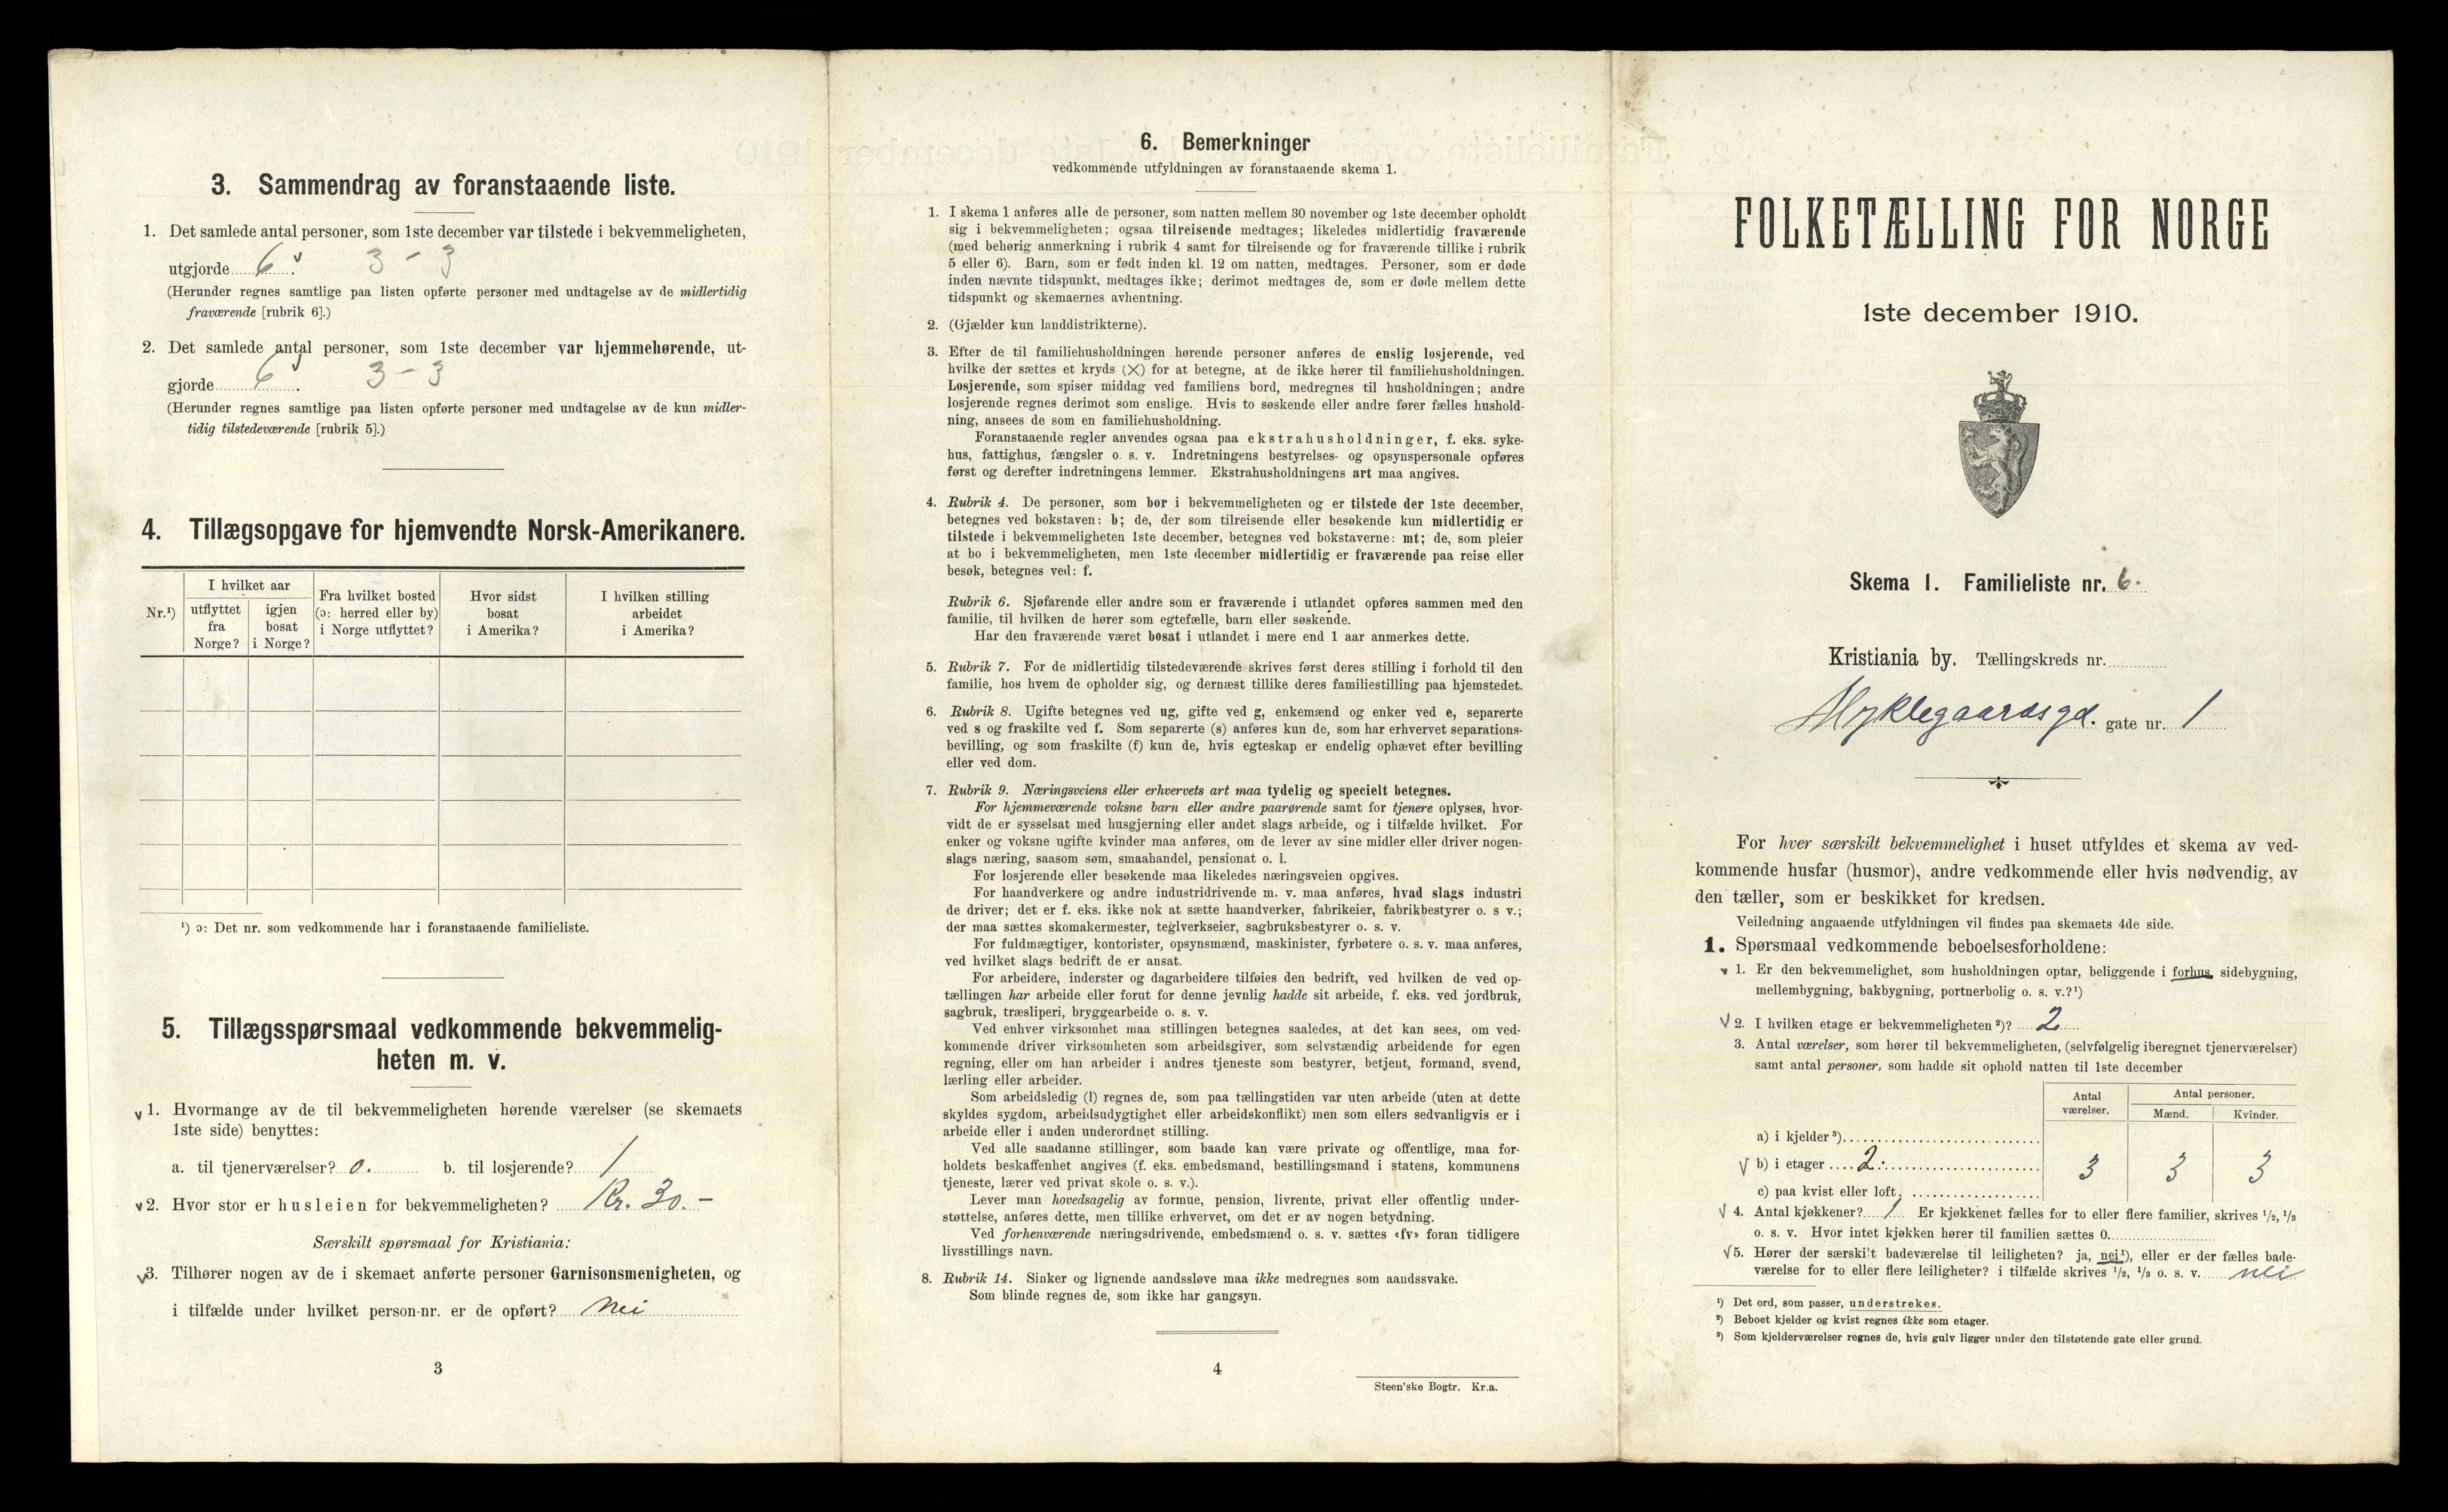 3. Sammendrag av foranstaaende liste.
1. Det samlede antal personer, som 1ste december var tilstede i bekvemmeligheten,
utgjorde 6. v 3 - 3
(Herunder regnes samtlige paa listen opførte personer med undtagelse av de midlertidig
fraværende [rubrik 6].)
2. Det samlede antal personer, som 1ste december var hjemmehørende, ut-
gjorde 6. v 3 - 3
(Herunder regnes samtlige paa listen opførte personer med undtagelse av de kun midler-
tidig tilstedeværende [rubrik 5].)
4. Tillægsopgave for hjemvendte Norsk-Amerikanere.
Nr.¹)
I hvilket aar
utflyttet
fra
Norge?
igjen
bosat
i Norge?
Fra hvilket bosted
(ɔ: herred eller by)
i Norge utflyttet?
Hvor sidst
bosat
i Amerika?
I hvilken stilling
arbeidet
i Amerika?
¹) ɔ: Det nr. som vedkommende har i foranstaaende familieliste.
5. Tillægsspørsmaal vedkommende bekvemmelig-
heten m. v.
v 1. Hvormange av de til bekvemmeligheten hørende værelser (se skemaets
1ste side) benyttes:
a. til tjenerværelser? 0. b. til losjerende? 1
v 2. Hvor stor er husleien for bekvemmeligheten? Kr. 30.-
Særskilt spørsmaal for Kristiania:
v 3. Tilhører nogen av de i skemaet anførte personer Garnisonsmenigheten, og
i tilfælde under hvilket person-nr. er de opført? Nei
3
6. Bemerkninger
vedkommende utfyldningen av foranstaaende skema 1.
1. I skema 1 anføres alle de personer, som natten mellem 30 november og 1ste december opholdt
sig i bekvemmeligheten; ogsaa tilreisende medtages; likeledes midlertidig fraværende
(med behørig anmerkning i rubrik 4 samt for tilreisende og for fraværende tillike i rubrik
5 eller 6). Barn, som er født inden kl. 12 om natten, medtages. Personer, som er døde
inden nævnte tidspunkt, medtages ikke; derimot medtages de, som er døde mellem dette
tidspunkt og skemaernes avhentning.
2. (Gjælder kun landdistrikterne).
3. Efter de til familiehusholdningen hørende personer anføres de enslig losjerende, ved
hvilke der sættes et kryds (×) for at betegne, at de ikke hører til familiehusholdningen.
Losjerende, som spiser middag ved familiens bord, medregnes til husholdningen; andre
losjerende regnes derimot som enslige. Hvis to søskende eller andre fører fælles hushold-
ning, ansees de som en familiehusholdning.
Foranstaaende regler anvendes ogsaa paa ekstrahusholdninger, f. eks. syke-
hus, fattighus, fængsler o. s. v. Indretningens bestyrelses- og opsynspersonale opføres
først og derefter indretningens lemmer. Ekstrahusholdningens art maa angives.
4. Rubrik 4. De personer, som bor i bekvemmeligheten og er tilstede der 1ste december,
betegnes ved bokstaven: b; de, der som tilreisende eller besøkende kun midlertidig er
tilstede i bekvemmeligheten 1ste december, betegnes ved bokstaverne: mt; de, som pleier
at bo i bekvemmeligheten, men 1ste december midlertidig er fraværende paa reise eller
besøk, betegnes ved: f.
Rubrik 6. Sjøfarende eller andre som er fraværende i utlandet opføres sammen med den
familie, til hvilken de hører som egtefælle, barn eller søskende.
Har den fraværende været bosat i utlandet i mere end 1 aar anmerkes dette.
5. Rubrik 7. For de midlertidig tilstedeværende skrives først deres stilling i forhold til den
familie, hos hvem de opholder sig, og dernæst tillike deres familiestilling paa hjemstedet.
6. Rubrik 8. Ugifte betegnes ved ug, gifte ved g, enkemænd og enker ved e, separerte
ved s og fraskilte ved f. Som separerte (s) anføres kun de, som har erhvervet separations-
bevilling, og som fraskilte (f) kun de, hvis egteskap er endelig ophævet efter bevilling
eller ved dom.
7. Rubrik 9. Næringsveiens eller erhvervets art maa tydelig og specielt betegnes.
For hjemmeværende voksne barn eller andre paarørende samt for tjenere oplyses, hvor-
vidt de er sysselsat med husgjerning eller andet slags arbeide, og i tilfælde hvilket. For
enker og voksne ugifte kvinder maa anføres, om de lever av sine midler eller driver nogen-
slags næring, saasom søm, smaahandel, pensionat o. l.
For losjerende eller besøkende maa likeledes næringsveien opgives.
For haandverkere og andre industridrivende m. v. maa anføres, hvad slags industri
de driver; det er f. eks. ikke nok at sætte haandverker, fabrikeier, fabrikbestyrer o. s v.;
der maa sættes skomakermester, teglverkseier, sagbruksbestyrer o. s. v.
For fuldmægtiger, kontorister, opsynsmænd, maskinister, fyrbøtere o. s. v. maa anføres,
ved hvilket slags bedrift de er ansat.
For arbeidere, inderster og dagarbeidere tilføies den bedrift, ved hvilken de ved op-
tællingen har arbeide eller forut for denne jevnlig hadde sit arbeide, f. eks. ved jordbruk,
sagbruk, træsliperi, bryggearbeide o. s. v.
Ved enhver virksomhet maa stillingen betegnes saaledes, at det kan sees, om ved-
kommende driver virksomheten som arbeidsgiver, som selvstændig arbeidende for egen
regning, eller om han arbeider i andres tjeneste som bestyrer, betjent, formand, svend,
lærling eller arbeider.
Som arbeidsledig (l) regnes de, som paa tællingstiden var uten arbeide (uten at dette
skyldes sygdom, arbeidsudygtighet eller arbeidskonflikt) men som ellers sedvanligvis er i
arbeide eller i anden underordnet stilling.
Ved alle saadanne stillinger, som baade kan være private og offentlige, maa for-
holdets beskaffenhet angives (f. eks. embedsmand, bestillingsmand i statens, kommunens
tjeneste, lærer ved privat skole o. s. v.).
Lever man hovedsagelig av formue, pension, livrente, privat eller offentlig under-
støttelse, anføres dette, men tillike erhvervet, om det er av nogen betydning.
Ved forhenværende næringsdrivende, embedsmænd o. s. v. sættes «fv» foran tidligere
livsstillings navn.
8. Rubrik 14. Sinker og lignende aandssløve maa ikke medregnes som aandssvake.
Som blinde regnes de, som ikke har gangsyn.
4
Steen'ske Bogtr. Kr.a.
FOLKETÆLLING FOR NORGE
1ste december 1910.
Skema 1. Familieliste nr. 6.
Kristiania by. Tællingskreds nr.
Myklegaardsgd. gate nr. 1
For hver særskilt bekvemmelighet i huset utfyldes et skema av ved-
kommende husfar (husmor), andre vedkommende eller hvis nødvendig, av
den tæller, som er beskikket for kredsen.
Veiledning angaaende utfyldningen vil findes paa skemaets 4de side.
1. Spørsmaal vedkommende beboelsesforholdene:
v 1. Er den bekvemmelighet, som husholdningen optar, beliggende i forhus, sidebygning,
mellembygning, bakbygning, portnerbolig o. s. v.?¹)
v 2. I hvilken etage er bekvemmeligheten²)? 2
3. Antal værelser, som hører til bekvemmeligheten, (selvfølgelig iberegnet tjenerværelser)
samt antal personer, som hadde sit ophold natten til 1ste december
Antal
værelser.
Antal personer.
Mænd. Kvinder.
a) i kjelder³)
v b) i etager 2. 3 3 3
c) paa kvist eller loft
v 4. Antal kjøkkener? 1 Er kjøkkenet fælles for to eller flere familier, skrives ¹/₂, ¹/₃
o. s. v. Hvor intet kjøkken hører til familien sættes 0.
v 5. Hører der særski't badeværelse til leiligheten? ja, nei¹), eller er der fælles bade-
værelse for to eller flere leiligheter? i tilfælde skrives ¹/₂, ¹/₃ o. s. v. nei
¹) Det ord, som passer, understrekes.
²) Beboet kjelder og kvist regnes ikke som etager.
³) Som kjelderværelser regnes de, hvis gulv ligger under den tilstøtende gate eller grund.